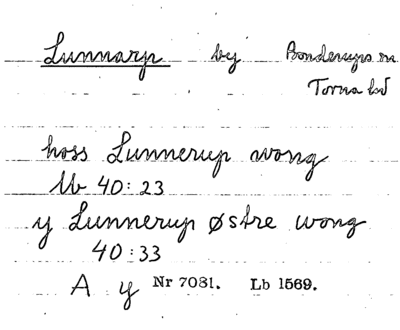 Lunnarp by Bonderups sn
Torna hd
hoss Lunnerup wong
Lb 40:23
y Lunnerup østre wong
40:33
A y Nr 7081. Lb 1569.